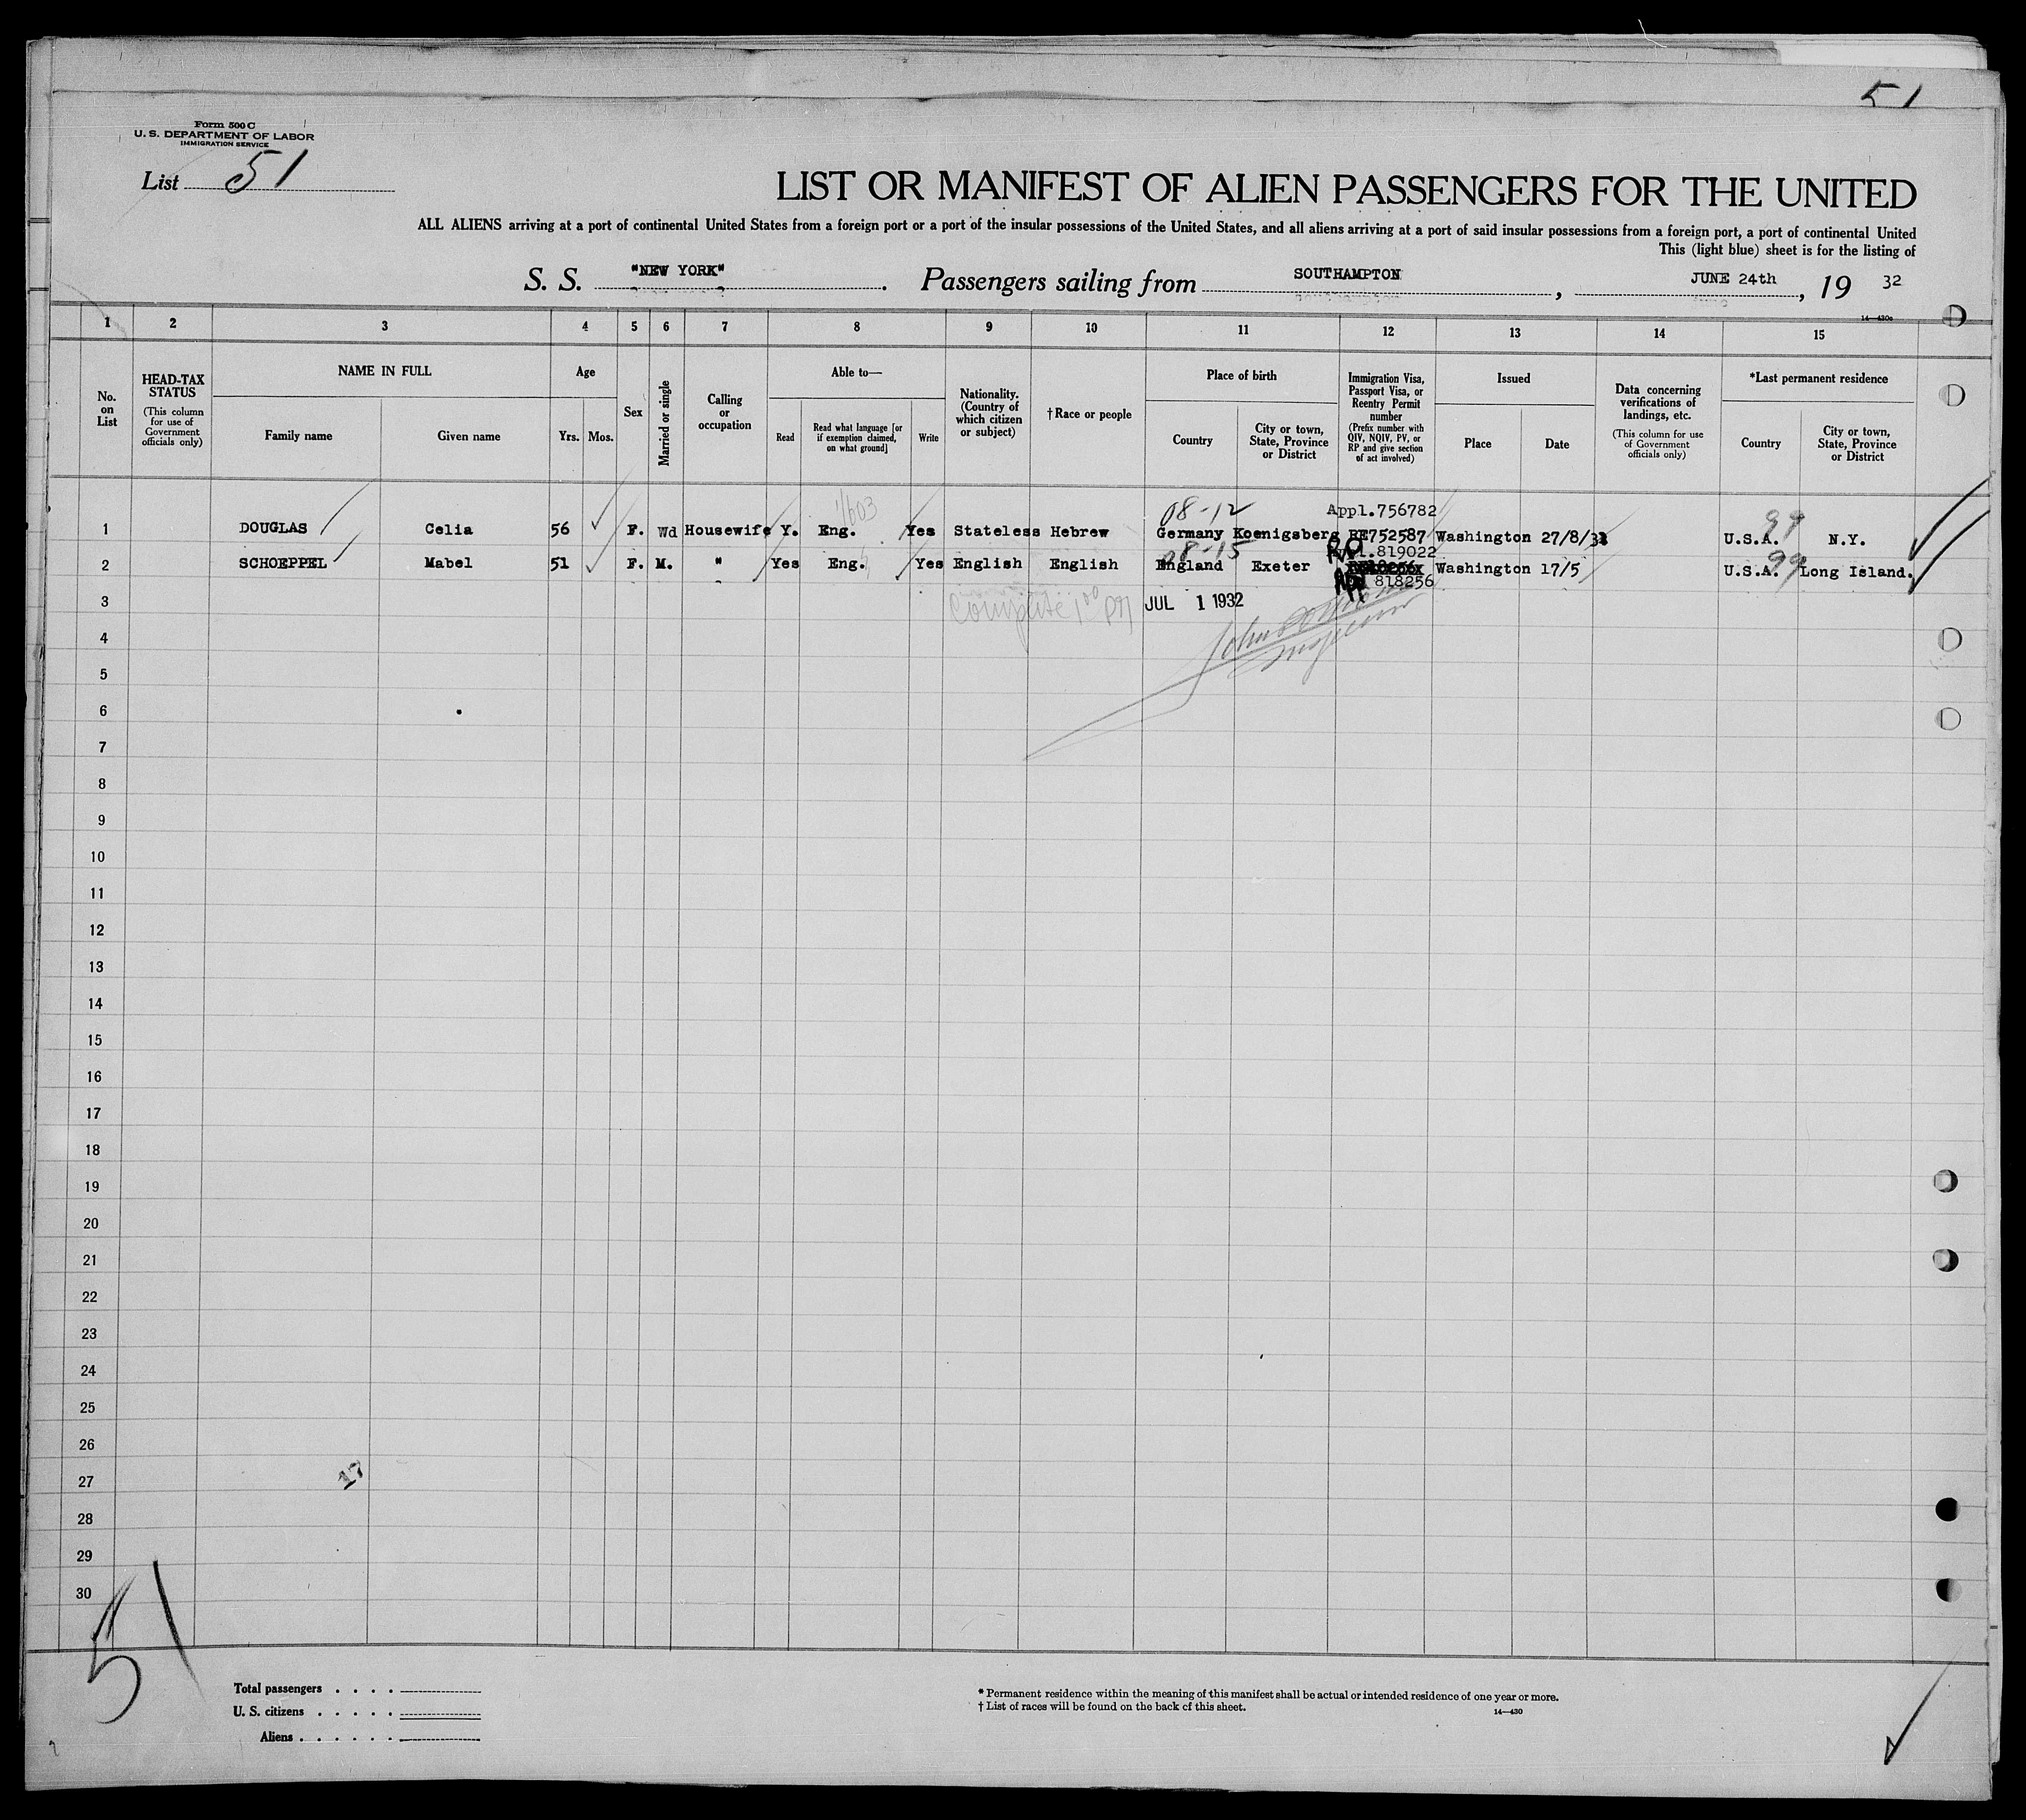 51
Form 500 C
U. S. DEPARTMENT OF LABOR
IMMIGRATION SERVICE
List 51
LIST OR MANIFEST OF ALIEN PASSENGERS FOR THE UNITED
ALL ALIENS arriving at a port of continental United States from a foreign port or a port of the insular possessions of the United States, and all aliens arriving at a port of said insular possessions from a foreign port, a port of continental United
This (light blue) sheet is for the listing of
S. S. "NEW YORK" . Passengers sailing from SOUTHAMPTON , JUNE 24th , 19 32
14—430c
1 2 3 4 5 6 7 8 9 10 11 12 13 14 15
No. on List
HEAD-TAX STATUS
(This column for use of Government officials only)
NAME IN FULL
Family name
Given name
Age
Yrs.
Mos.
Sex
Married or single
Calling or occupation
Able to—
Read
Read what language [or if exemption claimed, on what ground]
Write
Nationality. (Country of which citizen or subject)
†Race or people
Place of birth
Country
City or town, State, Province or District
Immigration Visa, Passport Visa, or Reentry Permit number
(Prefix number with QIV, NQIV, PV, or RP and give section of act involved)
Issued
Place
Date
Data concerning verifications of landings, etc.
(This column for use of Government officials only)
*Last permanent residence
Country
City or town, State, Province or District
08-12 Appl.756782 99
1 DOUGLAS Celia 56 F. Wd Housewife Y. Eng. Yes Stateless Hebrew Germany Koenigsberg RE752587 Washington 27/8/ U.S.A. N.Y.
08-15 819022 99
2 SCHOEPPEL Mabel 51 F. M. " Yes Eng. Yes English English England Exeter Washington 17/5 U.S.A. Long Island.
818256
3 Complete JUL 1 1932
4
5
6
7
8
9
10
11
12
13
14
15
16
17
18
19
20
21
22
23
24
25
26
27
28
29
30
51
Total passengers . . . .
U. S. citizens . . . . .
Aliens . . . . . .
* Permanent residence within the meaning of this manifest shall be actual or intended residence of one year or more.
† List of races will be found on the back of this sheet.
14—430